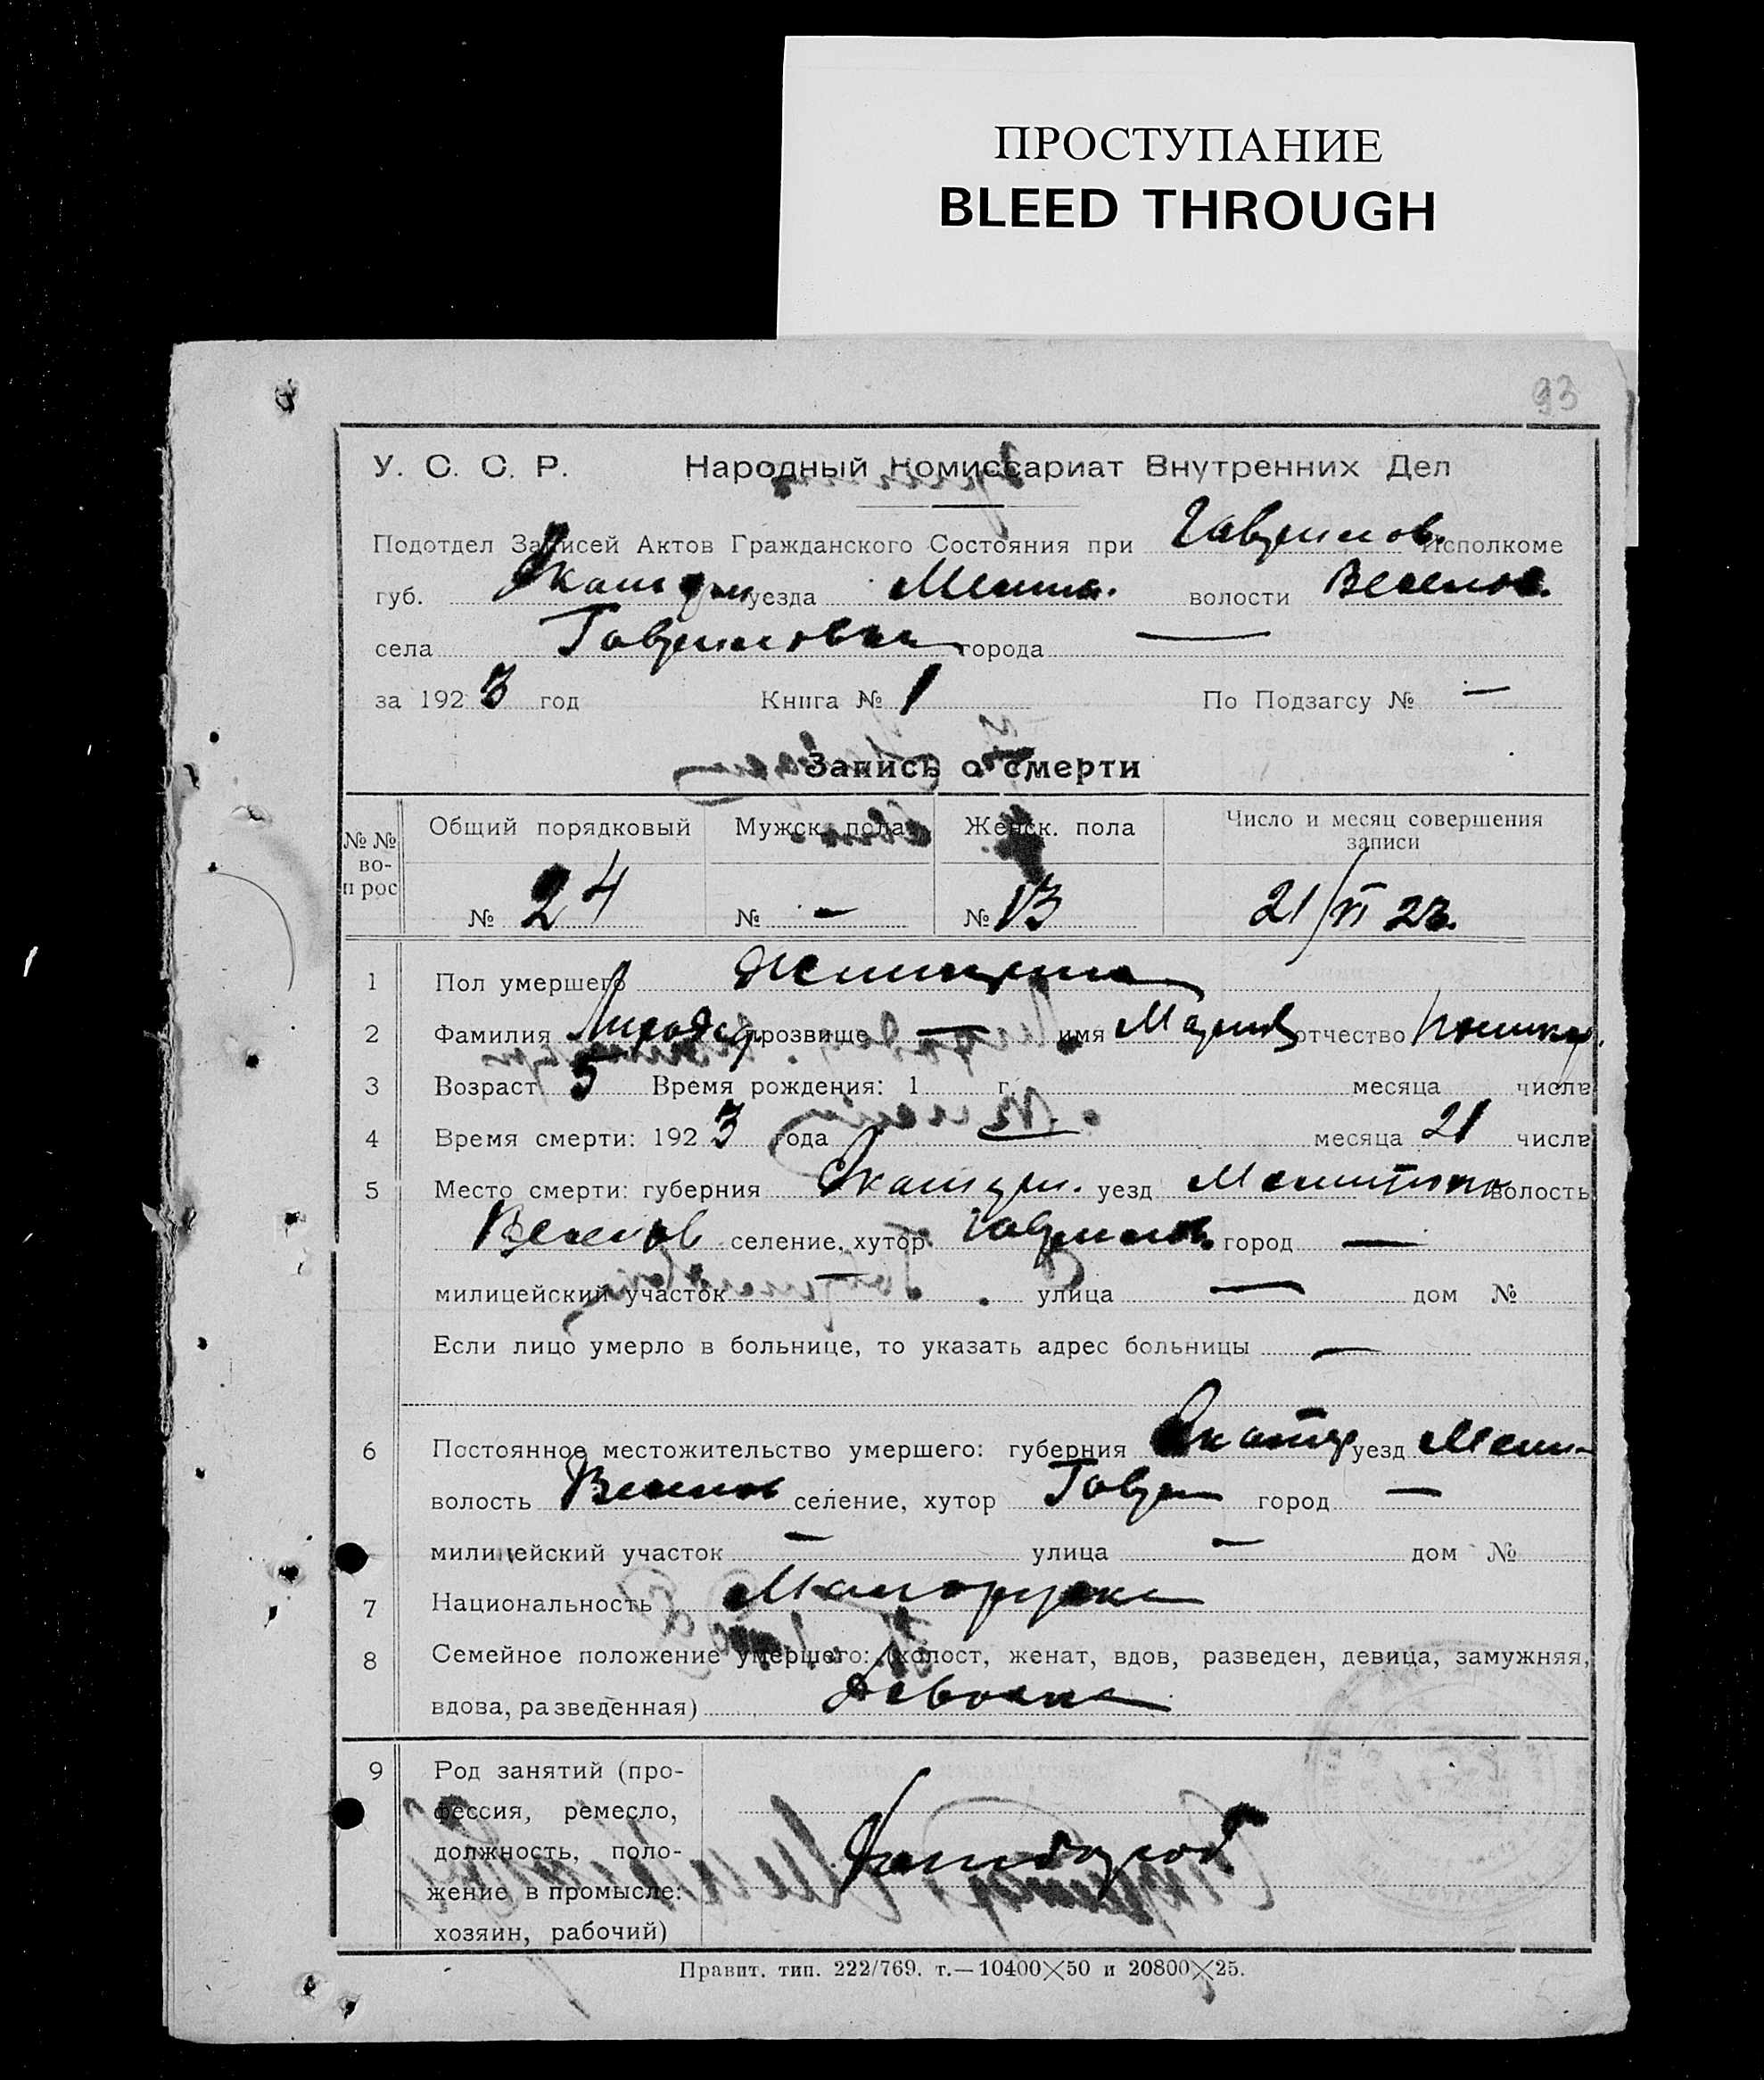 ПРОСТУПАНИЕ
BLEED THROUGH
93
У. С. С. Р. Народный Комиссариат Внутренних Дел
Подотдел Записей Актов Гражданского Состояния при Гаврилов. Исполкоме
губ. Екатер уезда Мелит. волости Веселов.
села Гавриловки города —
за 1923 год Книга № 1 По Подзагсу № —
Запись о смерти
№ № во- п рос Общий порядковый Мужск. пола Женск. пола Число и месяц совершения записи
№ 24 № — № 13 21/VI 23.
1 Пол умершего Женщина
2 Фамилия прозвище — имя Мария отчество
3 Возраст 5 Время рождения: 1 г. месяца числа
4 Время смерти: 1923 года месяца 21 числа
5 Место смерти: губерния Екатер. уезд Мелитоп волость
Веселов селение, хутор Гаврилов. город —
милицейский участок — улица — дом №
Если лицо умерло в больнице, то указать адрес больницы —
6 Постоянное местожительство умершего: губерния Екатер уезд Мели-
волость Веселов селение, хутор Гавр город —
милицейский участок — улица — дом №
7 Национальность Малоруска
8 Семейное положение умершего: (холост, женат, вдов, разведен, девица, замужняя,
вдова, разведенная) Девочка
9 Род занятий (про-
фессия, ремесло,
должность, поло-
жение в промысле:
хозяин, рабочий)
Хлебороб
Правит. тип. 222/769. т.—10400×50 и 20800×25.